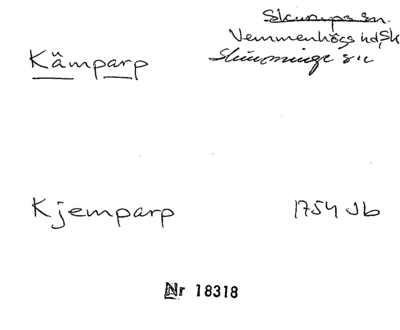 Skurups sn.
Vemmenhögs hd, Sk
Kämparp
Slimminge sn
Kjemparp 1754 Jb
Nr 18318